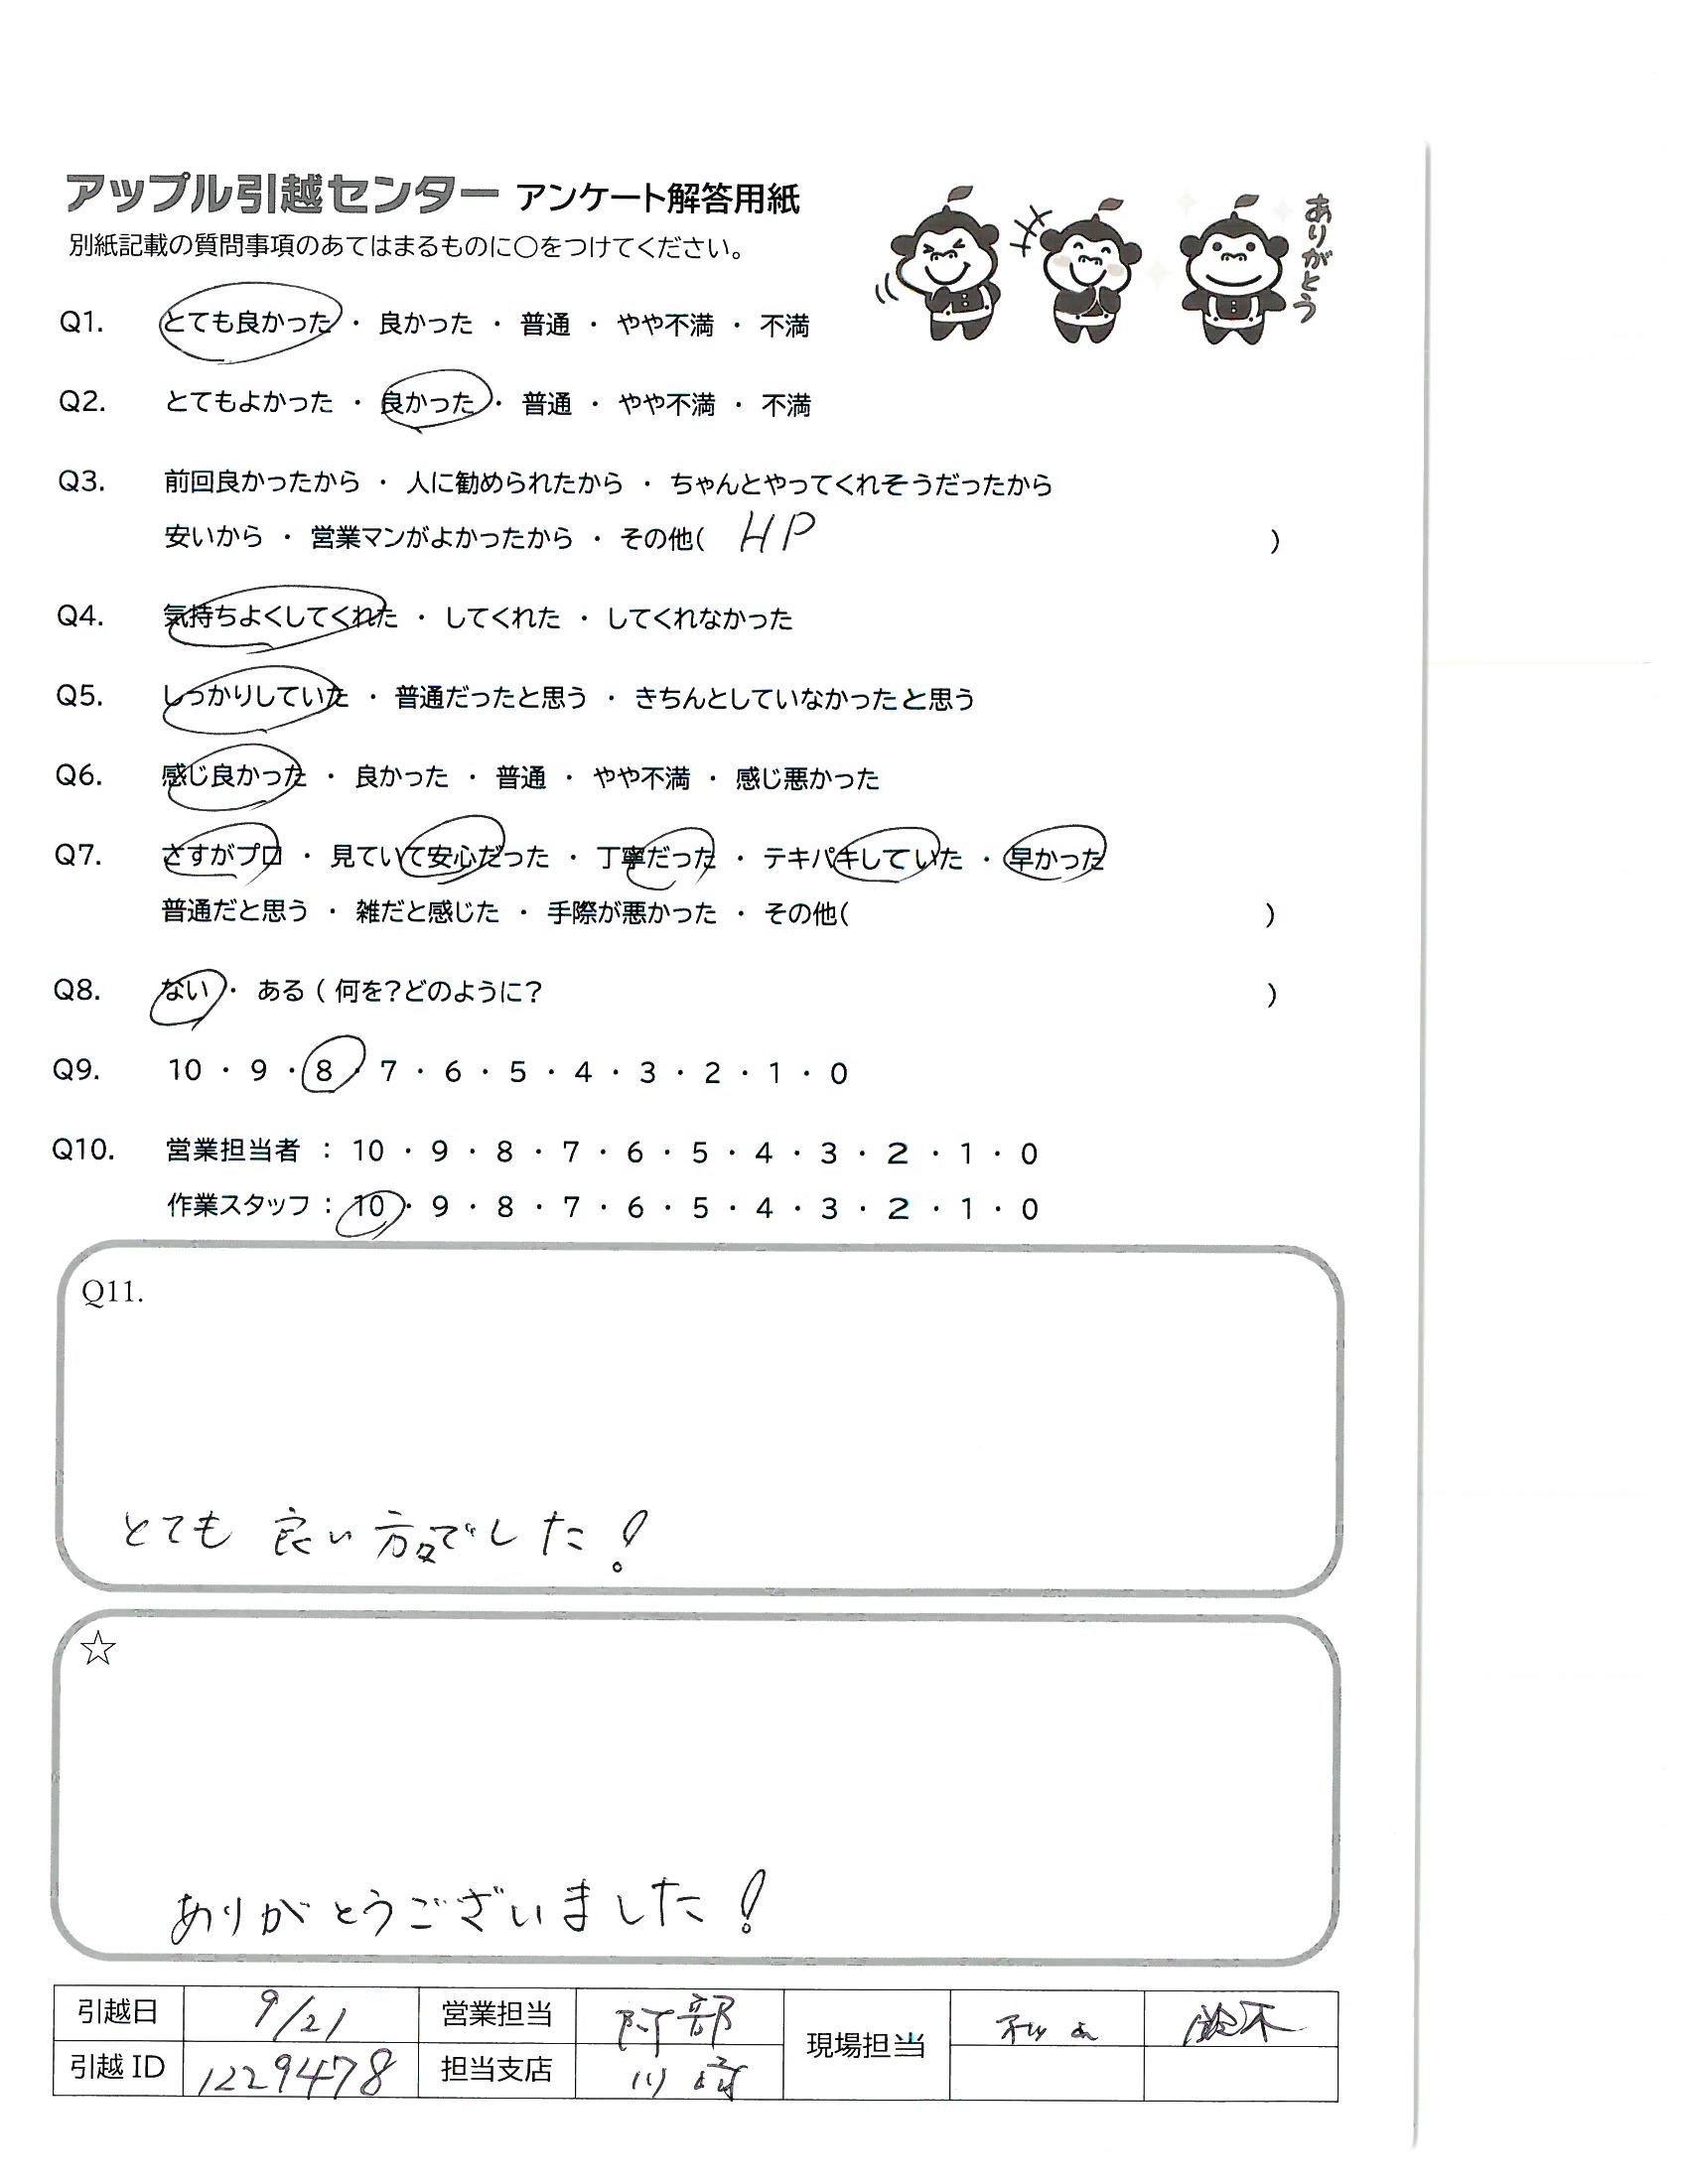 アップル引越センター アンケート解答用紙
ありがとう
別紙記載の質問事項のあてはまるものに○をつけてください。
Q1. とても良かった ・ 良かった ・ 普通 ・ やや不満 ・ 不満
Q2. とてもよかった ・ 良かった ・ 普通 ・ やや不満 ・ 不満
Q3. 前回良かったから ・ 人に勧められたから ・ ちゃんとやってくれそうだったから
安いから ・ 営業マンがよかったから ・ その他( HP )
Q4. 気持ちよくしてくれた ・ してくれた ・ してくれなかった
Q5. しっかりしていた ・ 普通だったと思う ・ きちんとしていなかったと思う
Q6. 感じ良かった ・ 良かった ・ 普通 ・ やや不満 ・ 感じ悪かった
Q7. さすがプロ ・ 見ていて安心だった ・ 丁寧だった ・ テキパキしていた ・ 早かった
普通だと思う ・ 雑だと感じた ・ 手際が悪かった ・ その他( )
Q8. ない ・ ある ( 何を?どのように? )
Q9. 10 ・ 9 ・ 8 ・ 7 ・ 6 ・ 5 ・ 4 ・ 3 ・ 2 ・ 1 ・ 0
Q10. 営業担当者 : 10 ・ 9 ・ 8 ・ 7 ・ 6 ・ 5 ・ 4 ・ 3 ・ 2 ・ 1 ・ 0
作業スタッフ : 10 ・ 9 ・ 8 ・ 7 ・ 6 ・ 5 ・ 4 ・ 3 ・ 2 ・ 1 ・ 0
Q11.
とても 良い 方々でした!
☆
ありがとうございました!
引越日 9/21 営業担当 阿部 現場担当 鈴木
引越 ID 1229478 担当支店 川崎